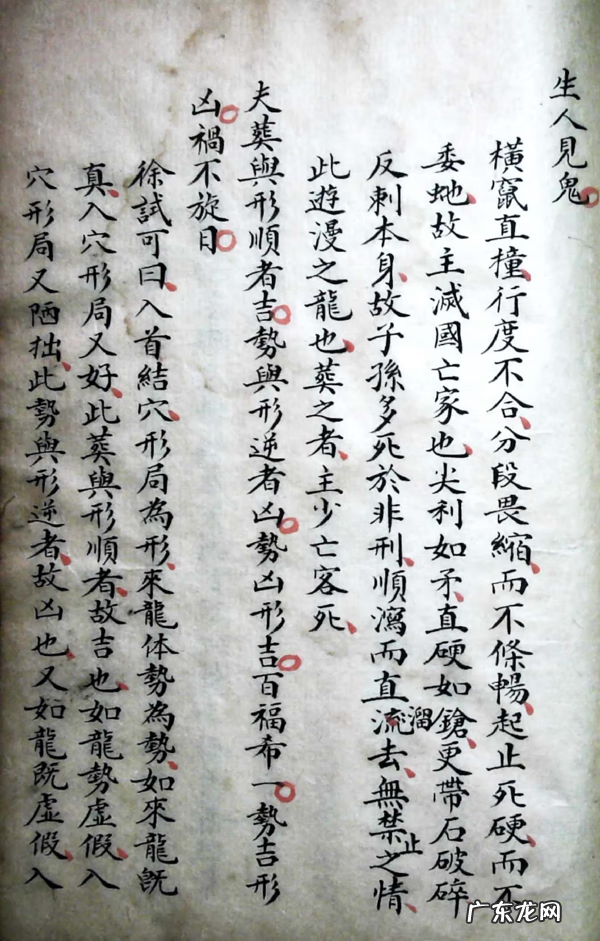 生人見鬼
橫竄直撞行度不合分段畏縮而不條暢起止死硬而不
委虵故主滅國亡家也尖利如矛直硬如鎗更帶石破碎
反刺本身故子孫多死於非刑順瀉而直流溜去無禁止之情
此遊漫之龍也葬之者主少亡客死
夫葬與形順者吉勢與形逆者凶勢凶形吉百福希一勢吉形
凶禍不旋日
徐試可曰入首結穴形局為形來龍体勢為勢如來龍旣
真入穴形局又好此葬與形順者故吉也如龍勢虛假入
穴形局又陋拙此勢與形逆者故凶也又如龍既虛假入
广东龙网